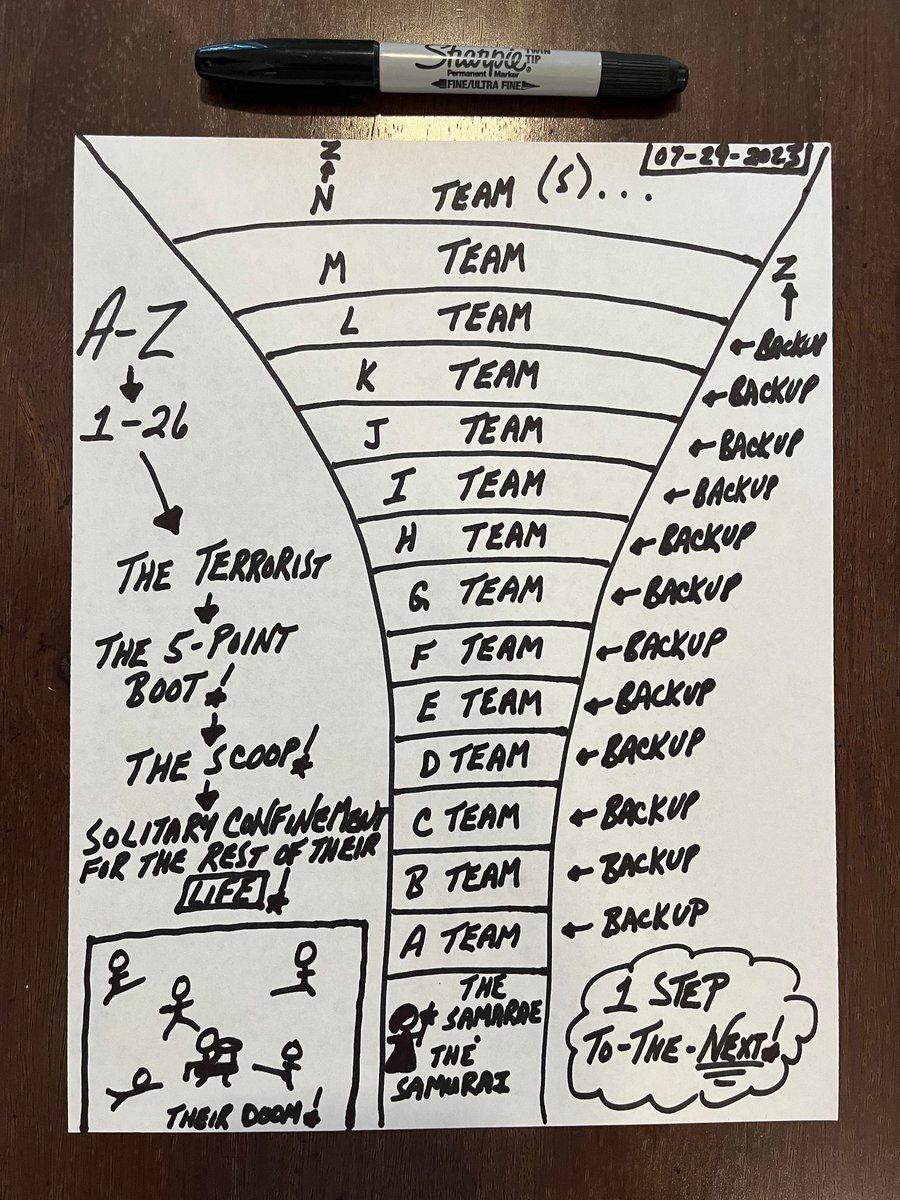 Sharpie
TWIN TIP
Permanent Marker
FINE/ULTRA FINE
07-29-2023
Z
N TEAM (S)...
M TEAM
L TEAM
K TEAM
J TEAM
I TEAM
H TEAM
G TEAM
F TEAM
E TEAM
D TEAM
C TEAM
B TEAM
A TEAM
THE
SAMARAE
THE
SAMURAI
Z
BACKUP
BACKUP
BACKUP
BACKUP
BACKUP
BACKUP
BACKUP
BACKUP
BACKUP
BACKUP
BACKUP
BACKUP
A-Z
1-26
THE TERRORIST
THE 5-POINT
BOOT!
THE SCOOP!
SOLITARY CONFINEMENT
FOR THE REST OF THEIR
LIFE!
THEIR DOOM!
1 STEP
TO-THE-NEXT!